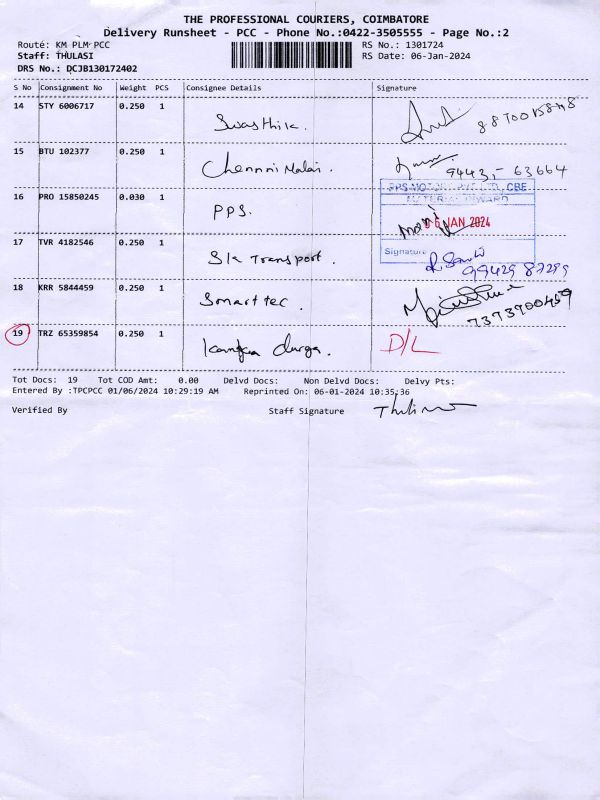 THE PROFESSIONAL COURIERS, COIMBATORE
Delivery Runsheet - PCC - Phone No.:0422-3505555 - Page No.:2
Route: KM PLM PCC RS No.: 1301724
Staff: THULASI RS Date: 06-Jan-2024
DRS No.: DCJB130172402
S No Consignment No Weight PCS Consignee Details Signature
14 STY 6006717 0.250 1 Swasthik.
15 BTU 102377 0.250 1 Chennni Malai. 9443,- 63664
16 PRO 15850245 0.030 1 PPS. PPS MOTORS PVT. LTD., CBE.
MATERIAL INWARD
06 JAN 2024
Signature
17 TVR 4182546 0.250 1 Sk Transport. 99429 87299
18 KRR 5844459 0.250 1 Smart tec. 7373900459
19 TRZ 65359854 0.250 1 durga. D/L
Tot Docs: 19 Tot COD Amt: 0.00 Delvd Docs: Non Delvd Docs: Delvy Pts:
Entered By :TPCPCC 01/06/2024 10:29:19 AM Reprinted On: 06-01-2024 10:35:36
Verified By Staff Signature